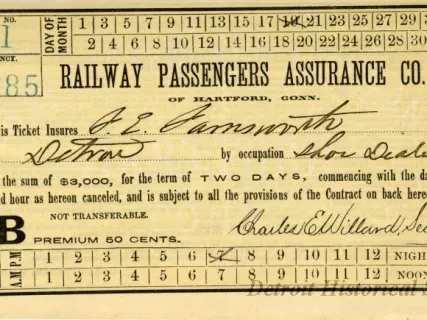 NO. DAY OF MONTH 1 3 5 7 9 11 13 15 17 19 21 23 25 27 29
1 2 4 6 8 10 12 14 16 18 20 22 24 26 28 30
NCY.
85 RAILWAY PASSENGERS ASSURANCE CO.
OF HARTFORD, CONN.
is Ticket Insures J. E. Farnsworth
Detroit by occupation Shoe Deale
the sum of $3,000, for the term of TWO DAYS, commencing with the da
d hour as hereon canceled, and is subject to all the provisions of the Contract on back here
NOT TRANSFERABLE.
B PREMIUM 50 CENTS. Charles E. Willard, Sec
A.M. 1 2 3 4 5 6 7 8 9 10 11 12 NIGH
P.M. 1 2 3 4 5 6 7 8 9 10 11 12 NOON
Detroit Historical S